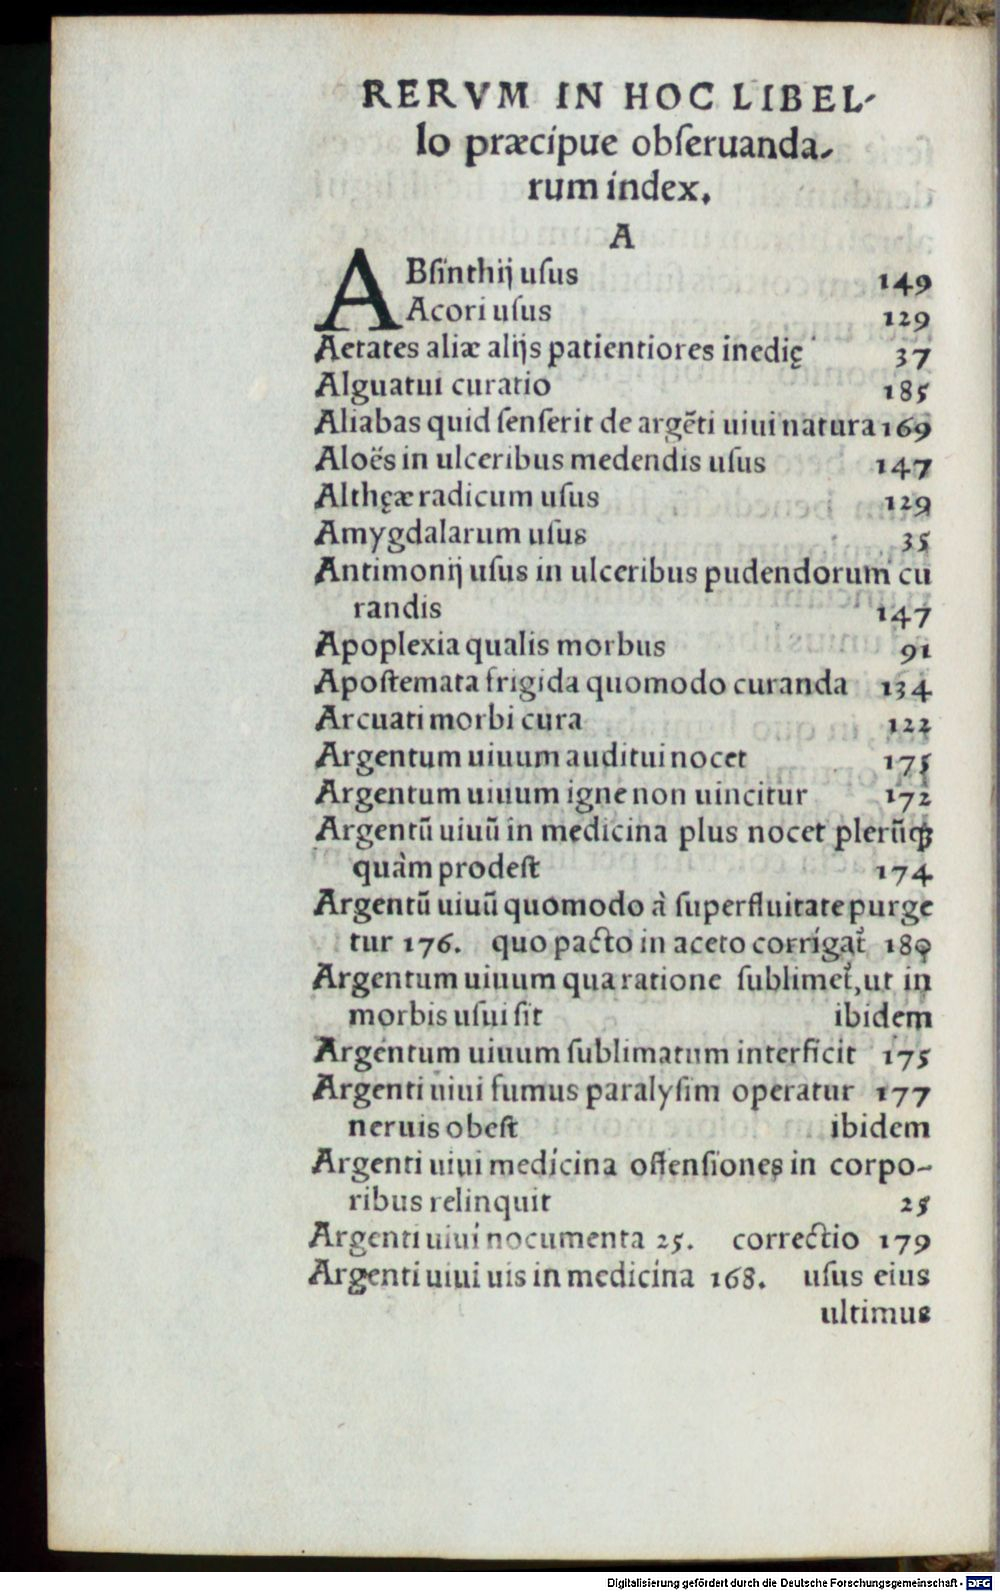 RERVM IN HOC LIBEL-
lo præcipue obſeruanda-
rum index.
A
ABſinthij uſus 149
Acori uſus 129
Aetates aliæ alijs patientiores inedię 37
Alguatui curatio 185
Aliabas quid ſenſerit de argẽti uiui natura 169
Aloës in ulceribus medendis uſus 147
Althęæ radicum uſus 129
Amygdalarum uſus 35
Antimonij uſus in ulceribus pudendorum cu
randis 147
Apoplexia qualis morbus 91
Apoſtemata frigida quomodo curanda 134
Arcuati morbi cura 122
Argentum uiuum auditui nocet 175
Argentum uiuum igne non uincitur 172
Argentũ uiuũ in medicina plus nocet plerũqꝫ
quàm prodeſt 174
Argentũ uiuũ quomodo à ſuperfluitate purge
tur 176. quo pacto in aceto corrigat᷑ 180
Argentum uiuum qua ratione ſublimet᷑, ut in
morbis uſui ſit ibidem
Argentum uiuum ſublimatum interficit 175
Argenti uiui fumus paralyſim operatur 177
neruis obeſt ibidem
Argenti uiui medicina oftenſiones in corpo-
ribus relinquit 25
Argenti uiui nocumenta 25. correctio 179
Argenti uiui uis in medicina 168. uſus eius
ultimus
Digitalisierung gefördert durch die Deutsche Forschungsgemeinschaft - DFG